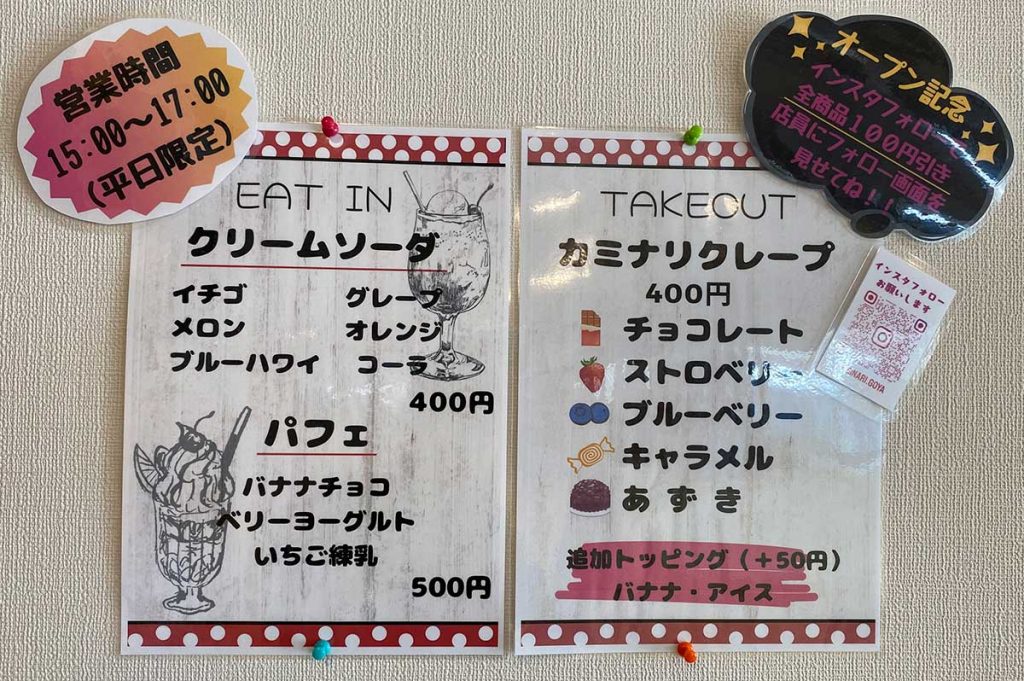 営業時間
15:00〜17:00
(平日限定)
EAT IN
クリームソーダ
イチゴ グレープ
メロン オレンジ
ブルーハワイ コーラ
400円
パフェ
バナナチョコ
ベリーヨーグルト
いちご練乳
500円
オープン記念
インスタフォロー
全商品100円引き
店員にフォロー画面を
見せてね！！
TAKEOUT
カミナリクレープ
400円
チョコレート
ストロベリー
ブルーベリー
キャラメル
あずき
追加トッピング（＋50円）
バナナ・アイス
インスタフォロー
お願いします